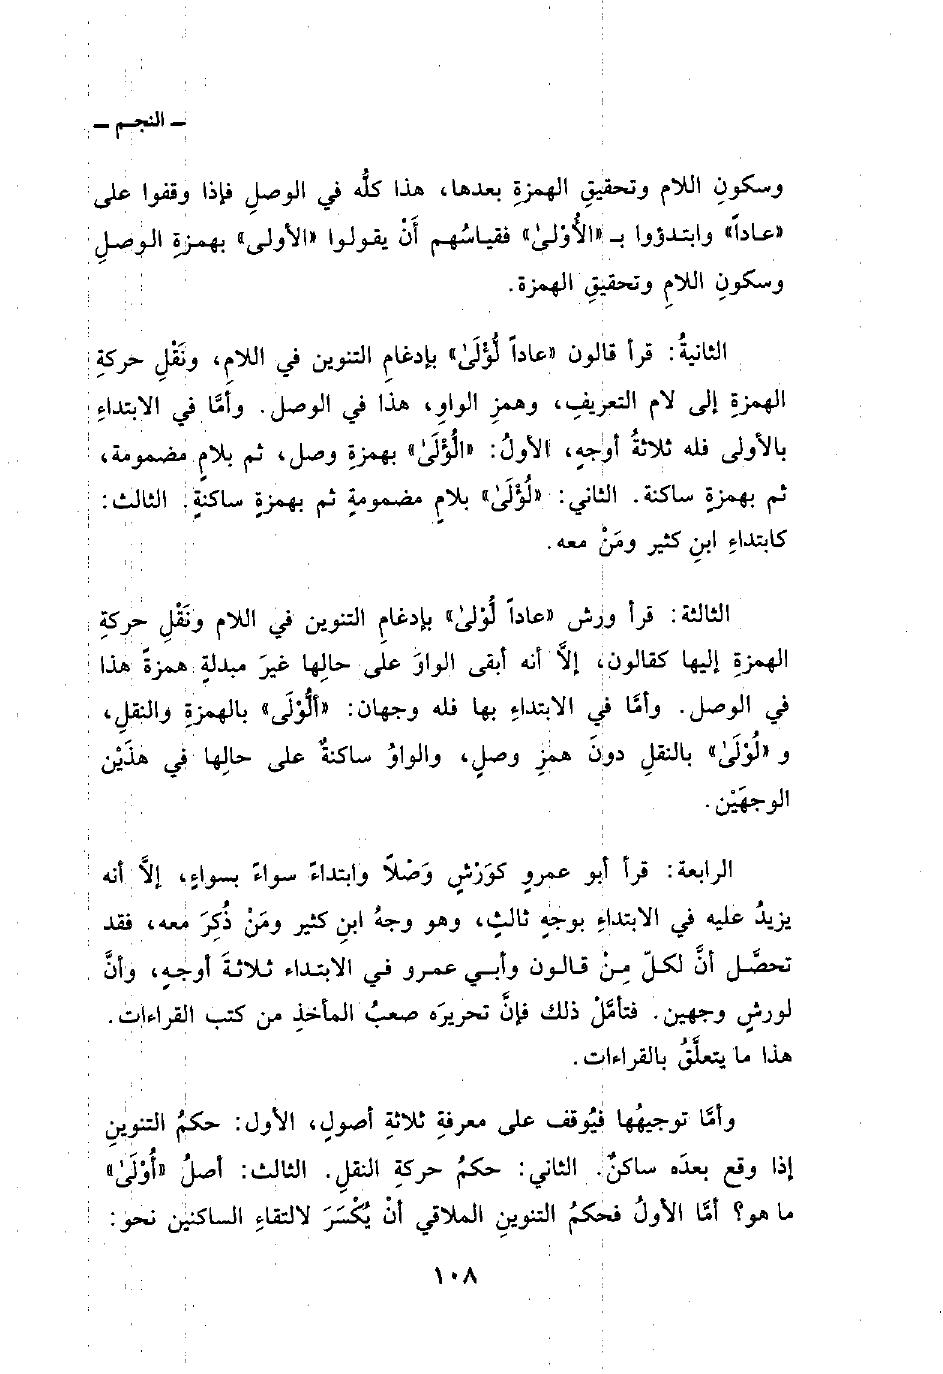 ـ النجـم ـ
وسكونِ اللام وتحقيقِ الهمزةِ بعدها، هذا كلُّه في الوصلِ فإذا وقفوا على
«عـاداً» وابتـدؤوا بـ «الأُوْلىٰ» فقياسُهم أَنْ يقـولوا «الأولى» بهمزةِ الوصـلِ
وسكونِ اللامِ وتحقيقِ الهمزة.
الثانيةُ: قرأ قالون «عاداً لُّؤْلَىٰ» بإدغامِ التنوين في اللامِ، ونَقْلِ حركةِ
الهمزةِ إلى لام التعريفِ، وهمزِ الواوِ، هذا في الوصل. وأمَّا في الابتداءِ
بالأولى فله ثلاثةُ أوجهٍ، الأولُ: «الُؤْلَىٰ» بهمزةِ وصل، ثم بلامٍ مضمومة،
ثم بهمزةٍ ساكنة. الثاني: «لُؤْلَىٰ» بلامٍ مضمومةٍ ثم بهمزةٍ ساكنةٍ. الثالث:
كابتداءِ ابنِ كثير ومَنْ معه.
الثالثة: قرأ ورش «عاداً لُوْلىٰ» بإدغامِ التنوين في اللام ونَقْلِ حركةِ
الهمزةِ إليها كقالون، إلاَّ أنه أبقى الواوَ على حالِها غيرَ مبدلةٍ همزةً هذا
في الوصل. وأمَّا في الابتداءِ بها فله وجهان: «ألُوْلَى» بالهمزةِ والنقلِ،
و «لُوْلَىٰ» بالنقلِ دونَ همزِ وصلٍ، والواوُ ساكنةٌ على حالِها في هذَيْن
الوجهَيْن.
الرابعة: قرأ أبو عمروٍ كوَرْشٍ وَصْلاً وابتداءً سواءً بسواءٍ، إلاَّ أنه
يزيدُ عليه في الابتداءِ بوجهٍ ثالثٍ، وهو وجهُ ابنِ كثير ومَنْ ذُكِرَ معه، فقد
تحصَّـل أنَّ لكـلّ مِـنْ قـالـون وأبـي عمـرو فـي الابتـداء ثـلاثـةَ أوجـهٍ، وأنَّ
لورشٍ وجهين. فتأمَّلْ ذلك فإنَّ تحريرَه صعبُ المأخذِ من كتب القراءات.
هذا ما يتعلَّقُ بالقراءات.
وأمَّا توجيهُها فيُوقف على معرفةِ ثلاثةِ أصولٍ، الأول: حكمُ التنوينِ
إذا وقع بعدَه ساكنٌ. الثاني: حكمُ حركةِ النقلِ. الثالث: أصلُ «أُوْلَىٰ»
ما هو؟ أمَّا الأولُ فحكمُ التنوينِ الملاقي أنْ يُكْسَرَ لالتقاءِ الساكنين نحو:
١٠٨